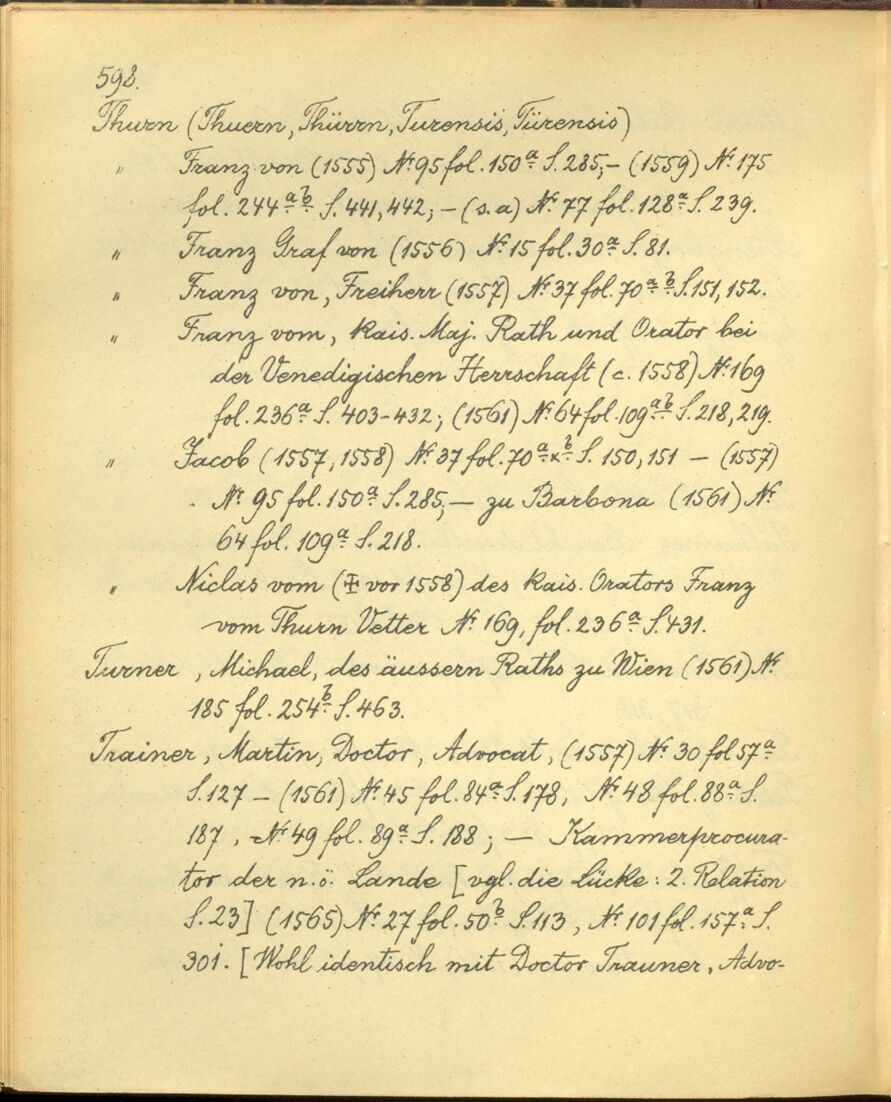 598.
Thurn (Thuern, Thürrn, Turensis, Türensis)
" Franz von (1555) No. 95 fol. 150a S. 285, – (1559) No. 175
fol. 244 a b S. 441, 442; – (s. a) No. 77 fol. 128a S. 239.
" Franz Graf von (1556) No. 15 fol. 30a S. 81.
" Franz von, Freiherr (1557) No. 37 fol. 70 a b S. 151, 152.
" Franz vom, kais. Maj. Rath und Orator bei
der Venedigischen Herrschaft (c. 1558) No. 169
fol. 236a S. 403-432; (1561) No. 64 fol. 109 a b S. 218, 219.
" Jacob (1557, 1558) No. 37 fol. 70 a x b S. 150, 151 – (1557)
No. 95 fol. 150a S. 285, – zu Barbona (1561) No.
64 fol. 109a S. 218.
" Niclas vom (‡ vor 1558) des kais. Orators Franz
vom Thurn Vetter No. 169, fol. 236a S. 431.
Turner, Michael, des äussern Raths zu Wien (1561) No.
185 fol. 254b S. 463.
Trainer, Martin, Doctor, Advocat, (1557) No. 30 fol 57a
S. 127 – (1561) No. 45 fol. 84a S. 178, No. 48 fol. 88a S.
187, No. 49 fol. 89a S. 188; – Kammerprocura-
tor der n. ö. Lande [vgl. die Lücke: 2. Relation
S. 23] (1565) No. 27 fol. 50b S. 113, No. 101 fol. 157a S.
301. [Wohl identisch mit Doctor Trauner, Advo-